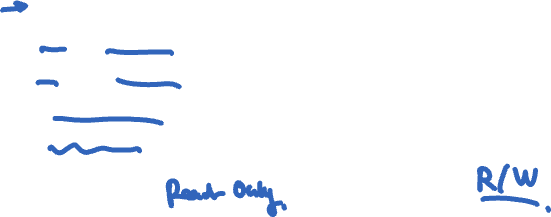 Read Only.
R/W.